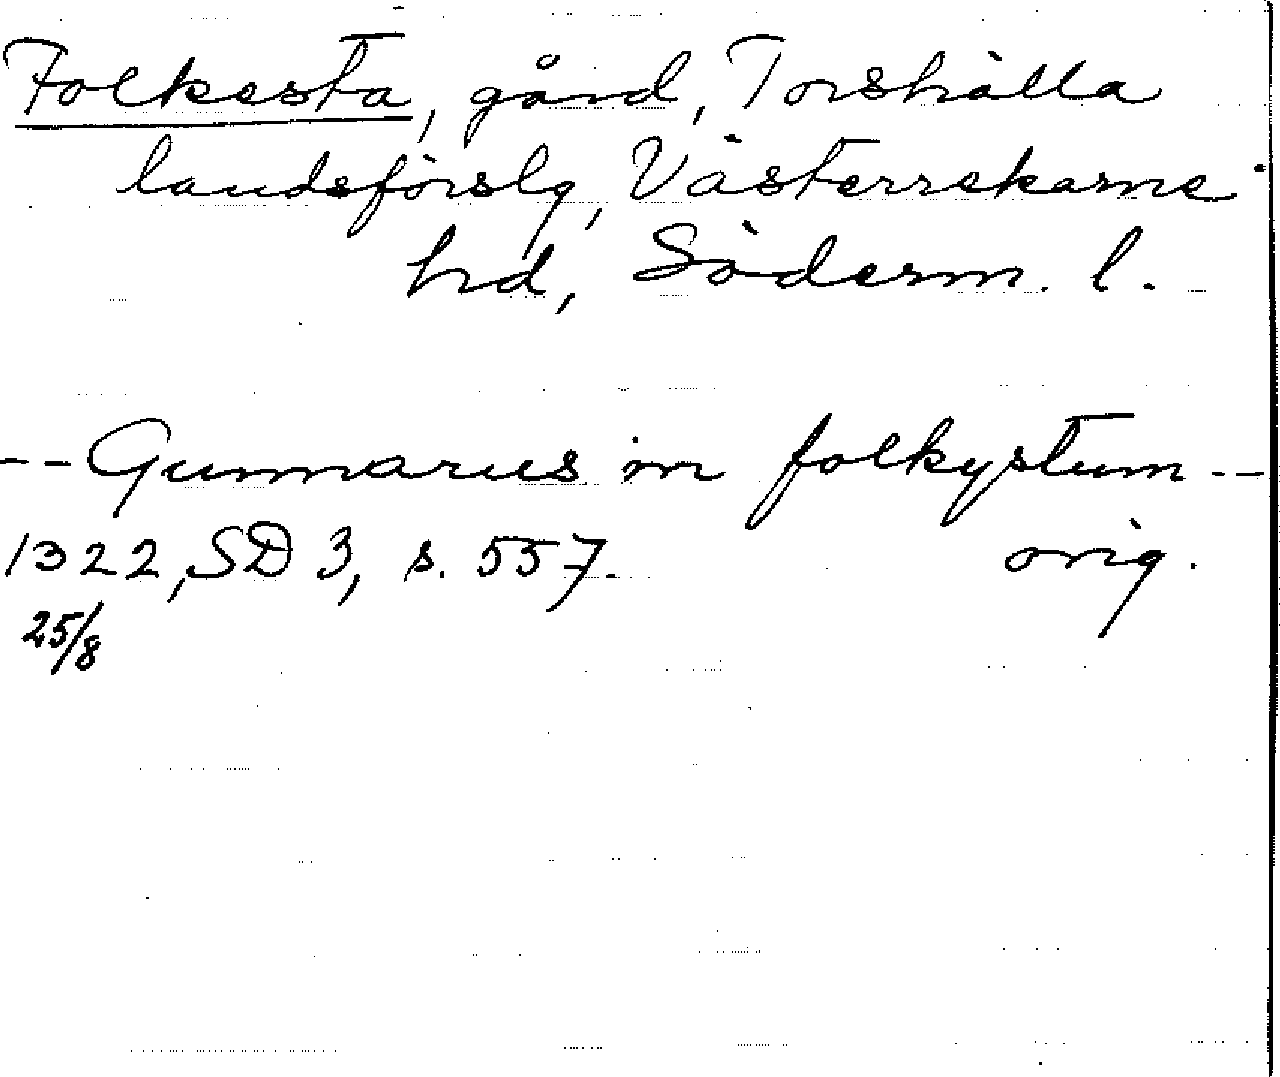 Folkesta, gård, Torshälla
landsförslg, Västerrekarne
hd, Söderm. l.
-- Gunnarus in folkystum --
1322, SD 3, s. 557. orig.
25/8